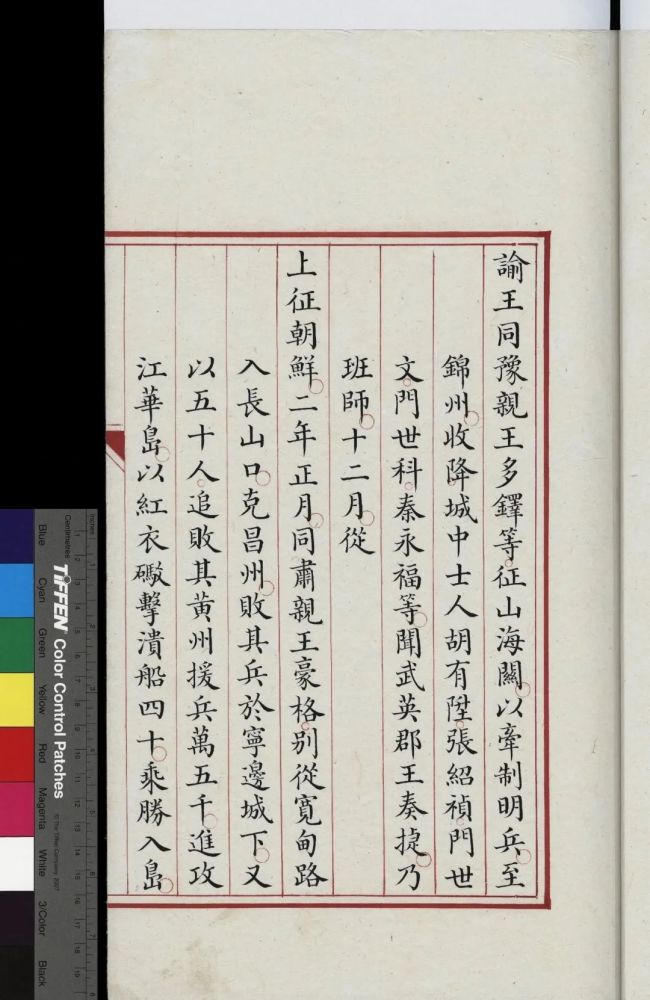 諭王同豫親王多鐸等征山海關以牽制明兵至
錦州收降城中士人胡有陞張紹禎門世
文門世科秦永福等聞武英郡王奏捷乃
班師十二月從
上征朝鮮二年正月同肅親王豪格別從寬甸路
入長山口克昌州敗其兵於寧邊城下又
以五十人追敗其黃州援兵萬五千進攻
江華島以紅衣礮擊潰船四十乘勝入島
Inches
Centimetres
TIFFEN Color Control Patches
© The Tiffen Company, 2007
Blue
Cyan
Green
Yellow
Red
Magenta
White
3/Color
Black